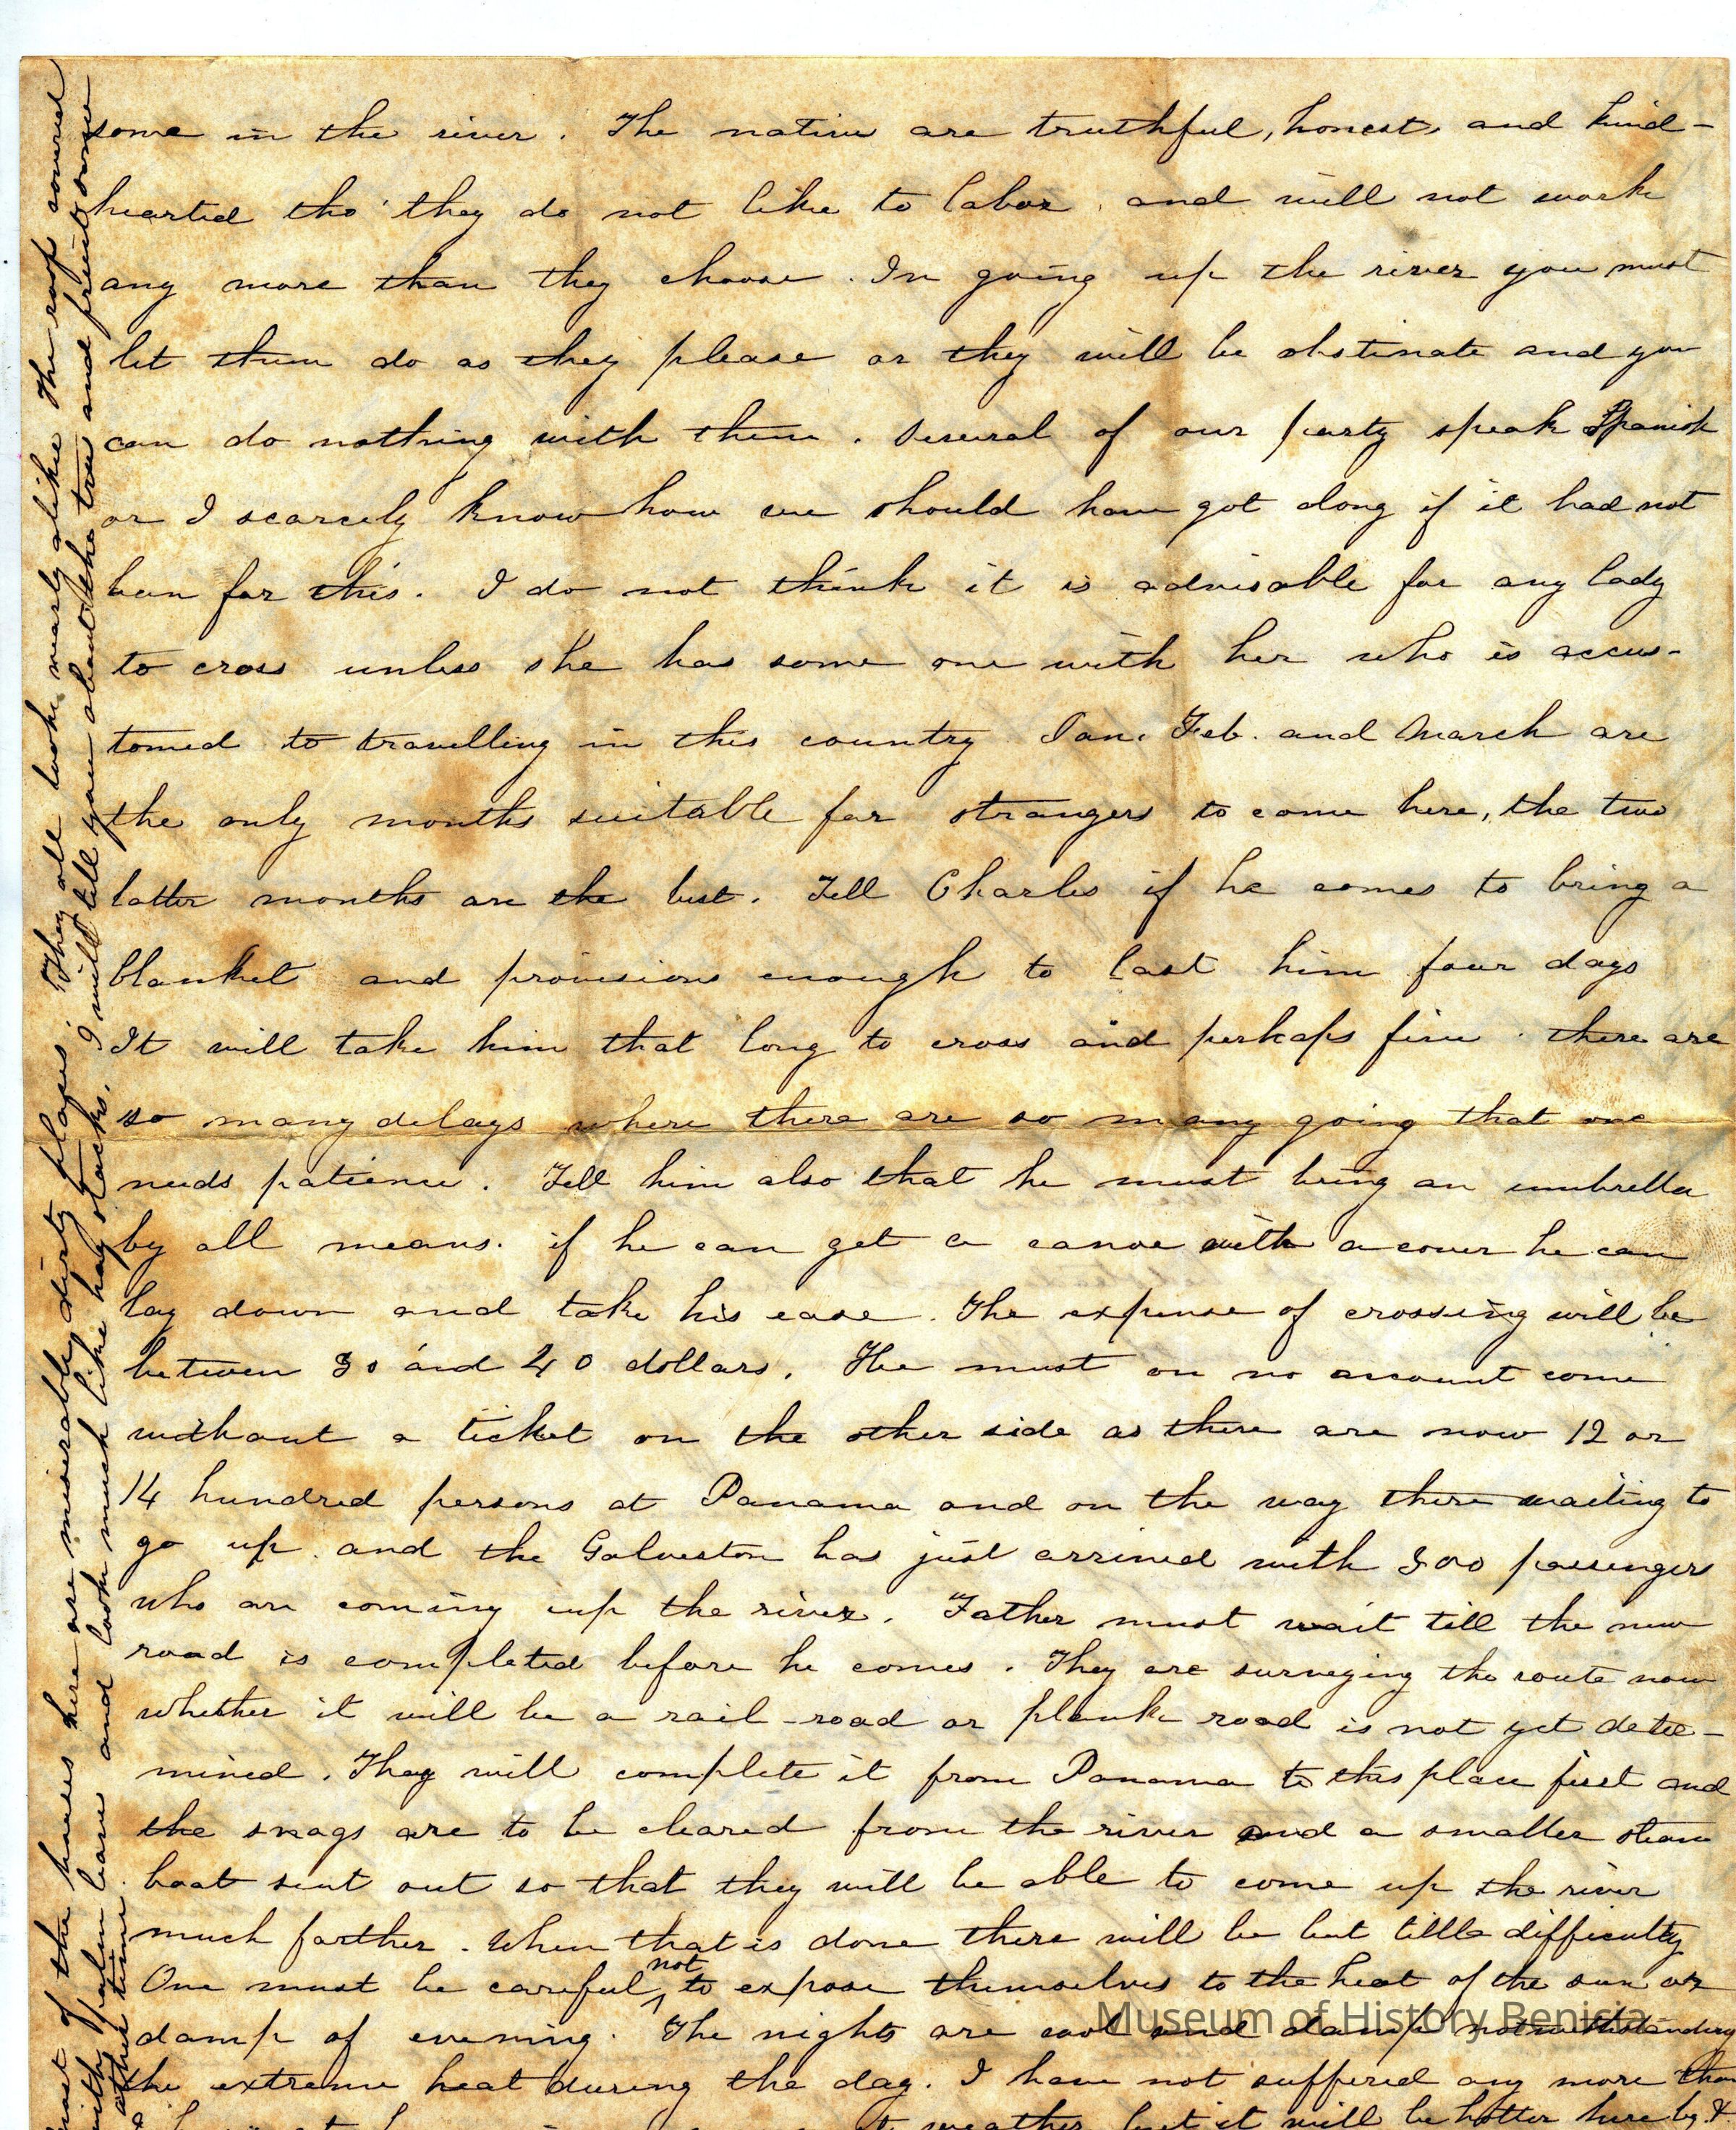 some in the river. The natives are truthful, honest, and kind-
hearted tho' they do not like to labor, and will not work
any more than they choose. In going up the river you must
let them do as they please or they will be obstinate and you
can do nothing with them. Several of our party speak Spanish
or I scarcely know how we should have got along if it had not
been for this. I do not think it is advisable for any lady
to cross unless she has some one with her who is accus-
tomed to travelling in this country Jan. Feb. and March are
the only months suitable for strangers to come here, the two
latter months are the best. Tell Charles if he comes to bring a
blanket and provisions enough to last him four days
It will take him that long to cross and perhaps five. there are
so many delays where there are so many going that one
needs patience. Tell him also that he must bring an umbrella
by all means. if he can get a canoe with a cover he can
lay down and take his ease. The expense of crossing will be
between 30 and 40 dollars. He must on no account come
without a ticket on the other side as there are now 12 or
14 hundred persons at Panama and on the way there waiting to
go up. and the Galveston has just arrived with 300 passengers
who are coming up the river. Father must wait till the new
road is completed before he comes. They are surveying the route now
whether it will be a rail-road or plank road is not yet dete-
mined. They will complete it from Panama to this place first and
the snags are to be cleared from the river and a smaller steam
boat sent out so that they will be able to come up the river
much farther. When that is done there will be but little difficulty
One must be careful not to expose themselves to the heat of the sun or
damp of evening. The nights are cool and damp notwithstanding
the extreme heat during the day. I have not suffered any more than
weather but it will be hotter here by &
most of the houses here are miserable dirty places. They all look nearly alike the roof covered
with palm leaves and look much like hay stacks. I will tell you about the trees and fruit some
other time
Museum of History Benicia